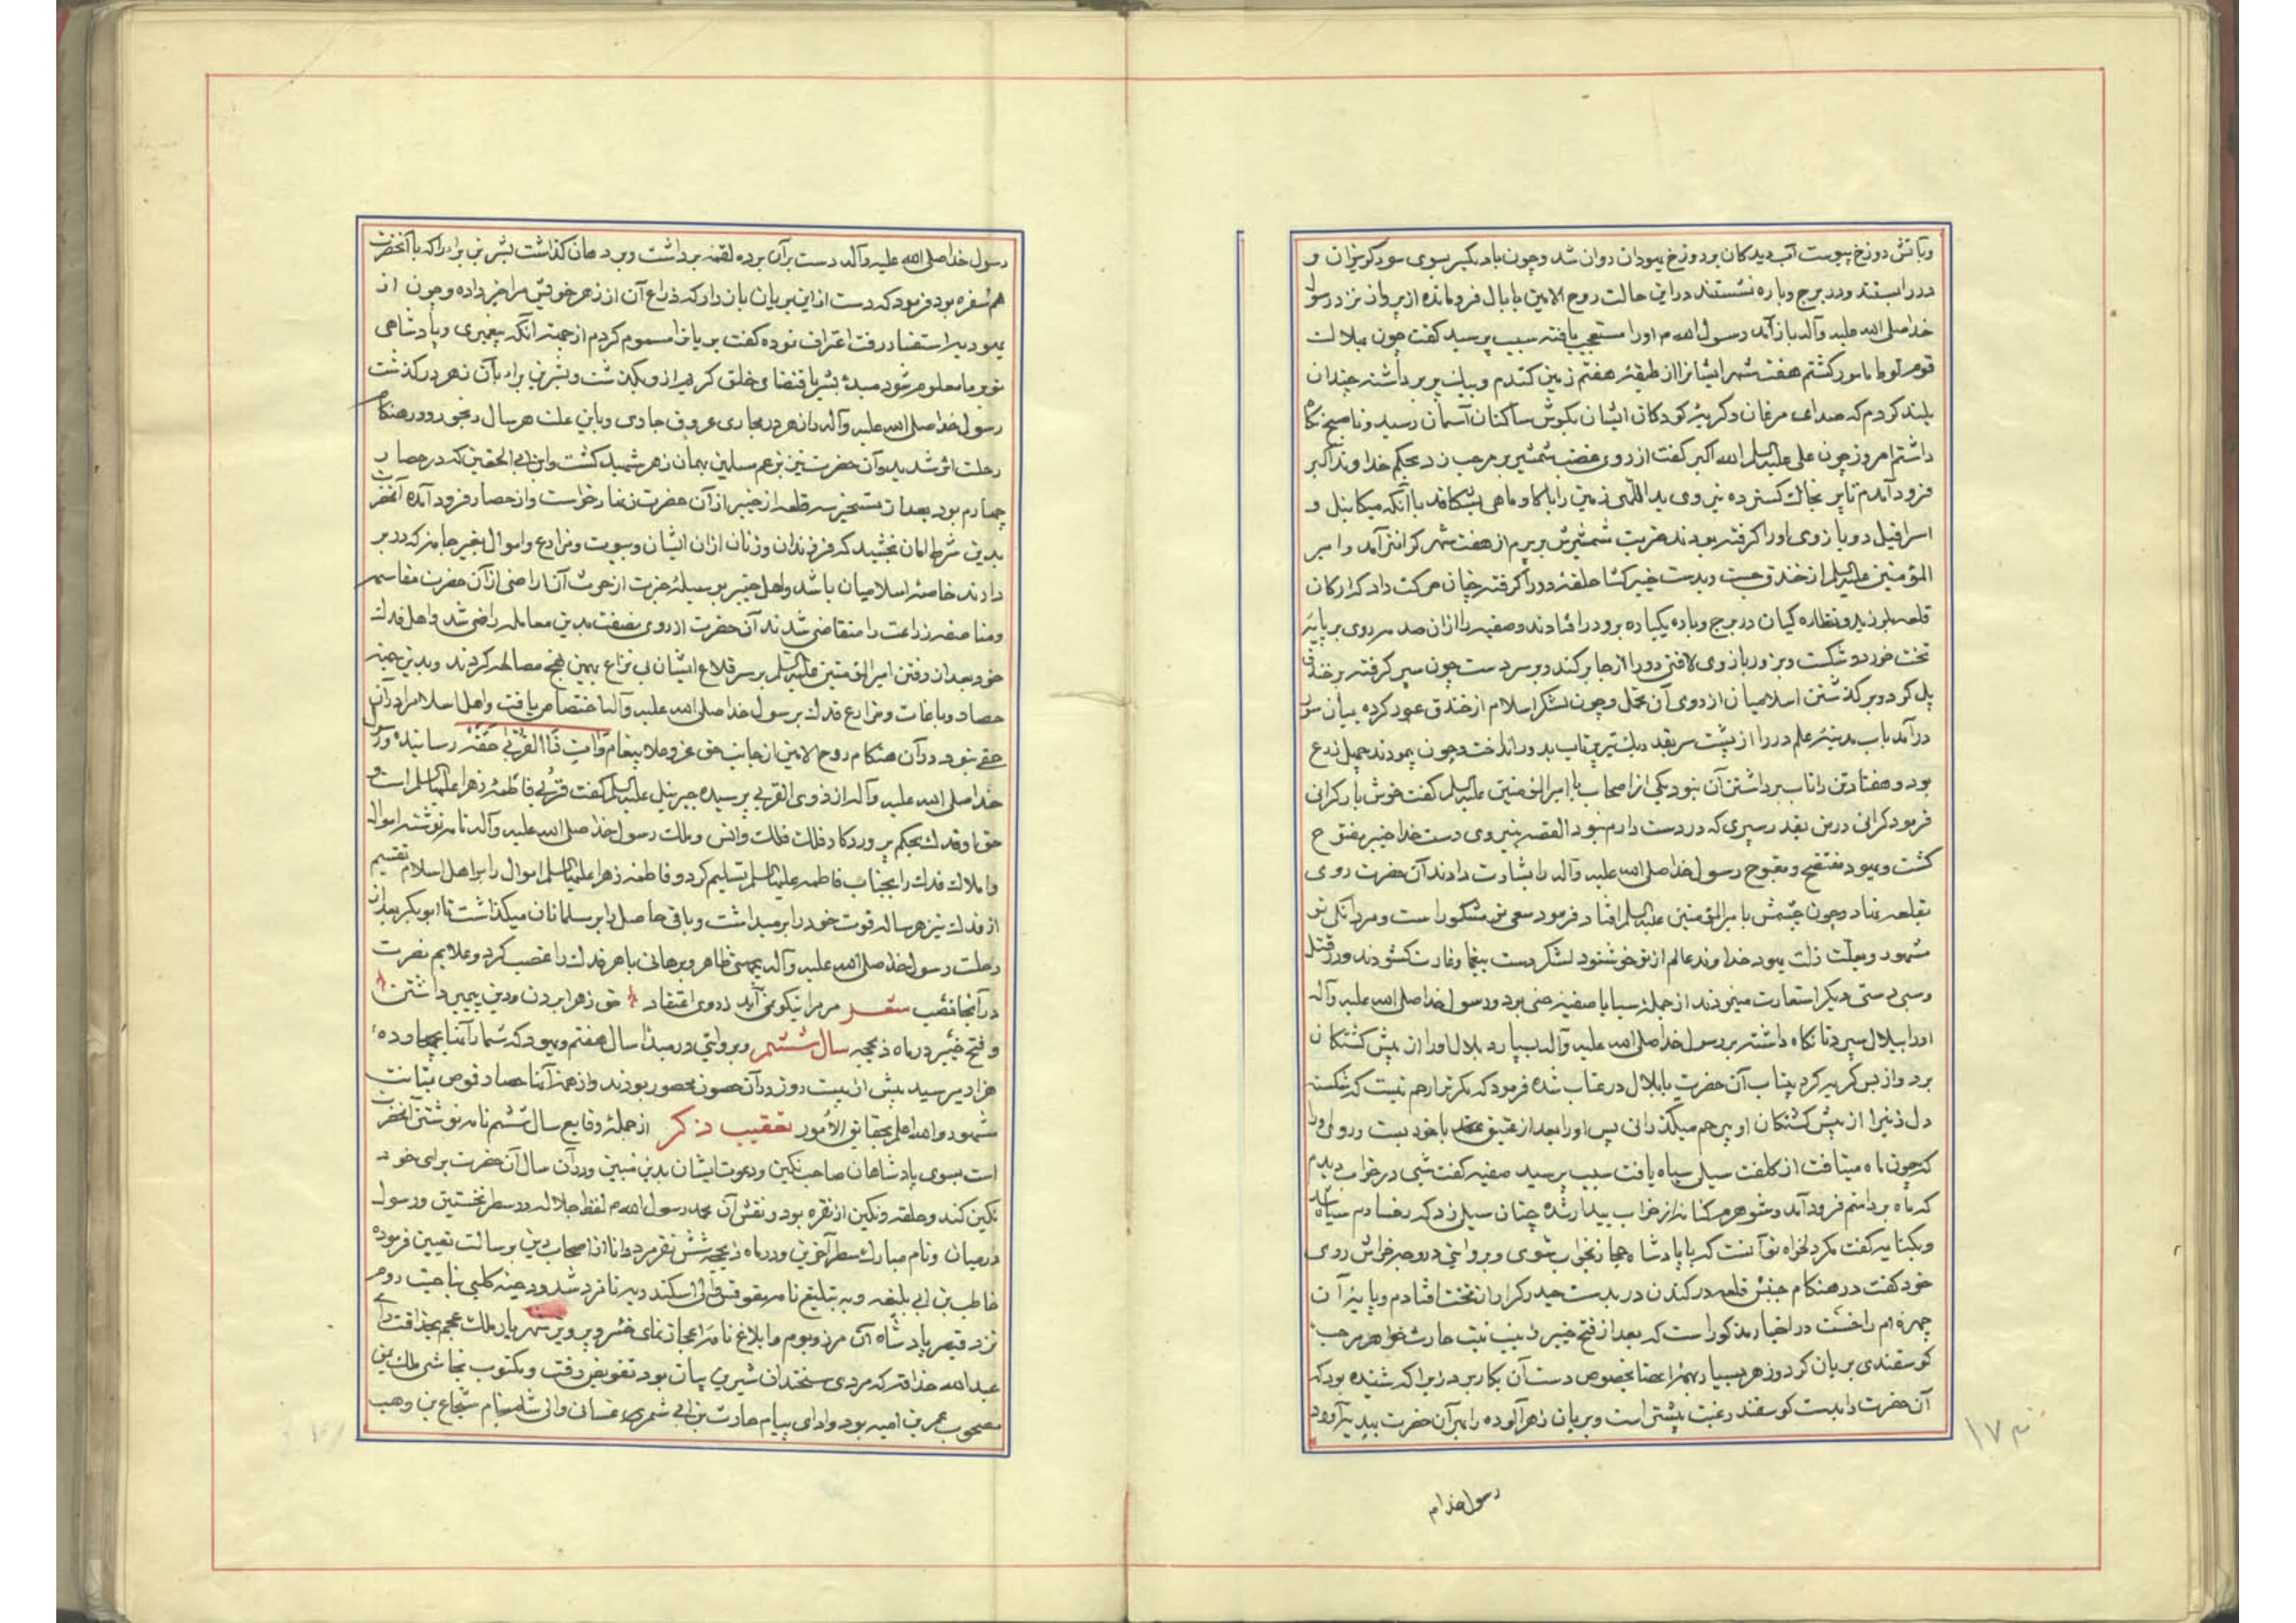 وبآتش دوزخ پیوست آب دیدکان بر دوزخ یهودان روان شد و چون باد یکسر بسوی سور کریزان و
در را بستند و در برج و باره نشستند در این حالت روح الامین با بال فرو مانده از پرواز نزد رسول
خدا صلی الله علیه وآله باز آمد رسول الله م او را متعجب یافته سبب پرسید کفت چون بهلاکت
قوم لوط مامور کشتم هفت شهر ایشانرا از طبقه هفتم زمین کندم و بیک پر برداشته چندان
بلند کردم که صدای مرغان و کریه کودکان ایشان بکوش ساکنان آسمان رسید و تا صبح نکاه
داشتم امروز چون علی علیه السلم الله اکبر کفت از روی غضب شمشیر بر مرحب زد بحکم خداوند اکبر
فرود آمدم تا پر بخاک کسترده نیروی ید اللهی زمین را با کاو و ماهی نشکافد با آنکه میکائیل و
اسرافیل دو بازوی او را کرفته بودند ضربت شمشیرش بر پرم از هفت شهر کرانتر آمد و امیر
المؤمنین علیه السلم از خندق جست و بدست خیبر کشا حلقه در را کرفته چنان حرکت داد که ارکان
قلعه بلرزید و نظاره کیان در برج و باره یکباره برو در افتادند و صفیه را از ان صدمه روی بر پایه
تخت خورد و شکست و بزور بازوی لافتی در را از جا برکند و بر سر دست چون سپر کرفته بر خندق
پل کرد و بر کذشتن اسلامیان از روی آن تحمل و چون لشکر اسلام از خندق عبور کرده بمیان سور
در آمد باب مدینه علم در را از پشت سر بقدر یک تیر پرتاب بدور انداخت و چون پیمودند چهل ذرع
بود و هفتاد تن را تاب برداشتن آن نبود یکی از اصحاب با امیر المؤمنین علیه السلم کفت خوش بار کرانی
فرمود کرانی در من بقدر سپری که در دست دارم نبود القصه بنیروی دست خدا خیبر مفتوح
کشت و یهود مفتضح و مقبوح رسول خدا صلی الله علیه وآله را بشارت دادند آن حضرت روی
بقلعه نهاد و چون چشمش بامیر المؤمنین علیه السلم افتاد فرمود سعی تو مشکور است و مردانکی تو
مشهور و بعلت ذلت یهود خداوند عالم از تو خوشنود لشکر دست بیغما و غارت کشودند و در قتل
و سبی دستی دیکر استعارت مینمودند از جمله سبایا صفیه حیی بود و رسول خدا صلی الله علیه وآله
او را ببلال سپرد تا نکاه داشته برسول خدا صلی الله علیه وآله بسپارد بلال او را از پیش کشتکان
برد و از بس کریه کرد بیتاب آن حضرت با بلال در عتاب شده فرمود که مکر ترا رحم نیست که شکسته
دل ذنیرا از پیش کشتکان او بی رحم میکذرانی پس او را بعد از عتیق عقد با خود بست و روی او را
که چون ماه میتافت از کلفت سیلی سیاه یافت سبب پرسید صفیه کفت شبی در خواب دیدم
که ماه بر دامنم فرود آمد و شوهرم کنانه از خواب بیدار شده چنان سیلی زد که رخسارم سیاه شد
و بکنایه کفت مکر دلخواه تو آنست که با پادشاه حجاز بخواب شوی و بروایتی در وجه خراش روی
خود کفت در هنکام جنبش قلعه در کندن در بدست حیدر کرار از تخت افتادم و پایه آن
چهره ام را خست در اخبار مذکور است که بعد از فتح خیبر زینب بنت حارث خواهر مرحب
کوسفندی بریان کرد و زهر بسیار بهمه اعضا بخصوص دست آن بکار برد زیرا که شنیده بود که
آن حضرت را بدست کوسفند رغبت بیشتر است و بریان زهر آلوده را بمر آن حضرت بهدیه آورد
رسول خدا م
۱۷۳
رسول خدا صلی الله علیه وآله دست بر آن برده لقمه برداشت و بر دهان کذاشت بشر بن براء را که با آنحضرت
هم سفره بود فرمود که دست از این بریان باز دار که ذراع آن از زهر خویش مرا خبر داده و چون از
یهودیه استفسار رفت اعتراف نموده کفت بریانرا مسموم کردم از جهة آنکه پیغمبری و پادشاهی
تو بر ما معلوم شود سید بشر باقتضای خلق کریم از و بکذشت و بشر بن براء بآن زهر در کذشت
رسول خدا صلی الله علیه وآله را زهر در مجاری عروق جاری و باین علت هر سال رنجور و در هنکام
رحلت اثر شدید و آن حضرت نیز بزعم مسلمین بهمان زهر شهید کشت و ابن ابی الحقیق که در حصار
چهارم بود بعد از تسخیر سه قلعه از خیبر از آن حضرت زنهار خواست و از حصار فرود آمده آنحضرت
بدین شرط امان بخشید که فرزندان و زنان ازان ایشان و بیوت و مزارع و اموال بغیر جامه که در بر
دارند خاصه اسلامیان باشد و اهل خیبر بوسیله خبرت از حرث آن اراضی از آن حضرت مقاسمه
و مناصفه زراعت را متقاضی شدند آن حضرت از روی نصفت بدین معامله راضی شد و اهل فدک
خود بعد از رفتن امیر المؤمنین علیه السلم بر سر قلاع ایشان بی نزاع بهمین نهج مصالحه کردند و بدین جهته
حصار و باغات و مزارع فدک برسول خدا صلی الله علیه وآله اختصاص یافت و اهل اسلام را در آن
حقی نبود در آن هنکام روح الامین از جانب حق عز و علا پیغام وَآتِ ذَا الْقُرْبى حَقَّهُ رسانید و رسول
خدا صلی الله علیه وآله از ذوی القربی پرسیده جبرئیل علیه السلم کفت قربی فاطمه زهرا علیها السلم است و
حق او فدک بحکم پروردکار فلک و ملک و انس و ملک رسول خدا صلی الله علیه وآله نامه نوشته اموال
و املاک فدک را بجناب فاطمه علیها السلم تسلیم کرد و فاطمه زهرا علیها السلم اموال را بر اهل اسلام تقسیم
از فدک نیز هر ساله قوت خود را بر میداشت و باقی حاصل را بر مسلمانان میکذاشت تا ابوبکر بعد از
رحلت رسول خدا صلی الله علیه وآله بی حجتی ظاهر و برهانی باهر فدک را غصب کرد و علایم نصرت
در آنجا نصب شعر مر مرا نیکو نمی آید ز روی اعتقاد حق زهرا بردن و دین پیمبر داشتن
و فتح خیبر در ماه ذیحجه سال ششم و بروایتی در مبدأ سال هفتم و یهود که شماره آنها بچهارده
هزار میرسید بیش از بیست روز در آن حصون محصور بودند و از همه آنها حصار قموص بمتانت
مشهور و الله اعلم بحقائق الأمور تعقیب ذکر از جمله وقایع سال ششم نامه نوشتن آنحضرت
است بسوی پادشاهان صاحب نکین و دعوت ایشان بدین مبین و در آن سال آن حضرت برای خود
نکین کند و حلقه و نکین از نقره بود و نقش آن محمد رسول الله م لفظ جلاله در سطر نخستین و رسول
در میان و نام مبارک سطر آخرین و در ماه ذیحجه شش نفر مرد دانا از اصحاب دین برسالت تعیین فرموده
خاطب بن ابی بلیغه و به تبلیغ نامه بمقوقس والی اسکندریه نامزد شد و دحیه کلبی بناحیت روم
نزد قیصر پادشاه آن مرز و بوم و ابلاغ نامه اعجاز نمای خسرو پرویز شهریار ملک عجم بحذاقت رای
عبد الله حذافه که مردی سخندان شیرین بیان بود تفویض رفت و مکتوب نجاشی ملک یمن
مصحوب عمر بن امیه بود و ادای پیام حارث بن ابی شمری غسان والی شام بنام شجاع بن وهب